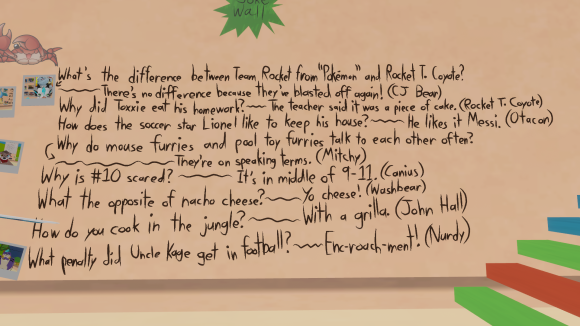 Joke
Wall
What's the difference between Team Rocket from "Pokémon" and Rocket T. Coyote?
There's no difference because they've blasted off again! (CJ Bear)
Why did Toxxie eat his homework? The teacher said it was a piece of cake. (Rocket T. Coyote)
How does the soccer star Lionel like to keep his house? He likes it Messi. (Otacon)
Why do mouse furries and pool toy furries talk to each other often?
They're on speaking terms. (Mitchy)
Why is #10 scared? It's in middle of 9-11. (Canius)
What the opposite of nacho cheese? Yo cheese! (Washbear)
How do you cook in the jungle? With a grilla. (John Hall)
What penalty did Uncle Kage get in football? Enc-roach-ment! (Nurdy)